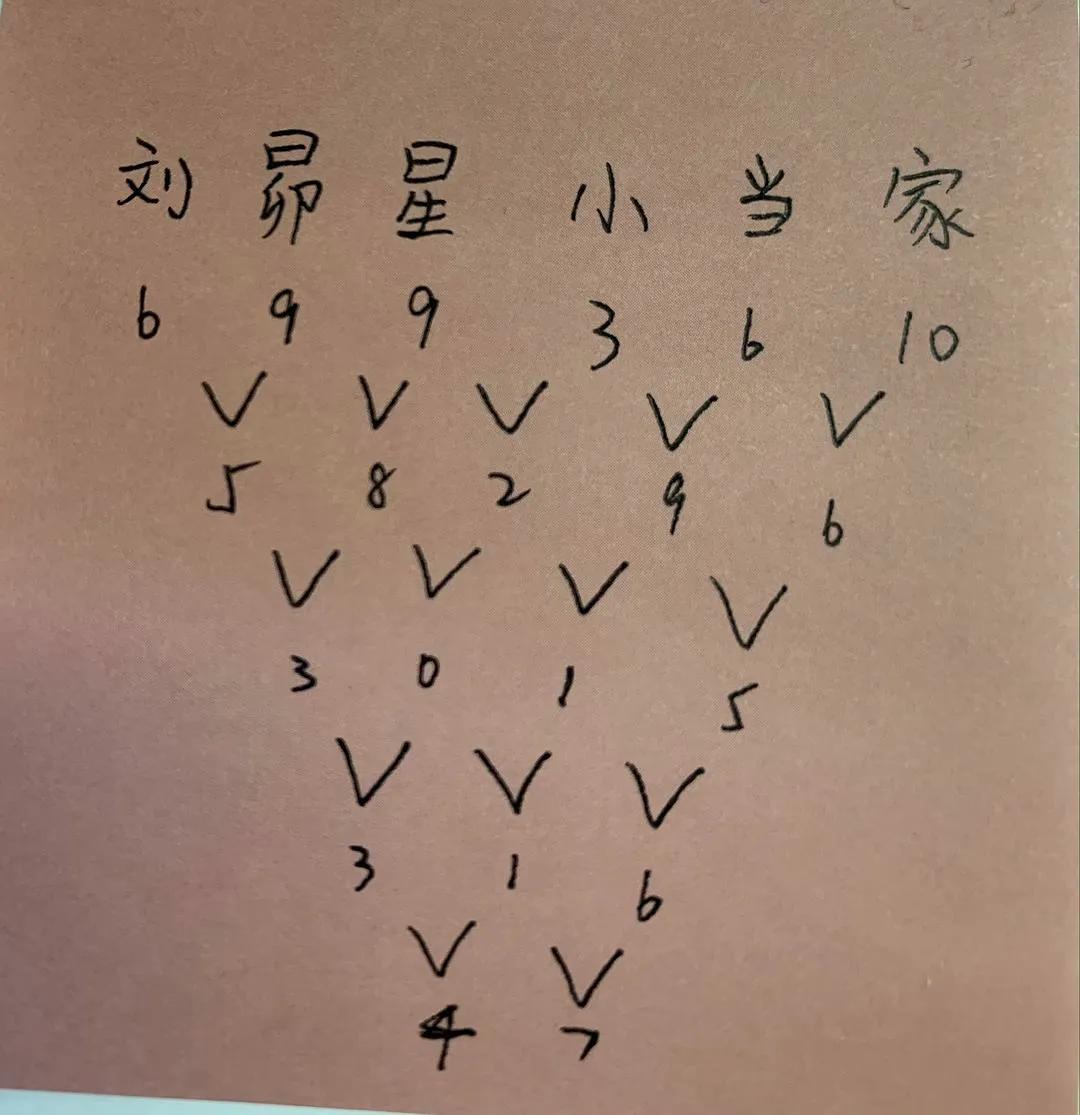 刘 昴 星 小 当 家
6 9 9 3 6 10
V V V V V
5 8 2 9 6
V V V V
3 0 1 5
V V V
3 1 6
V V
4 7